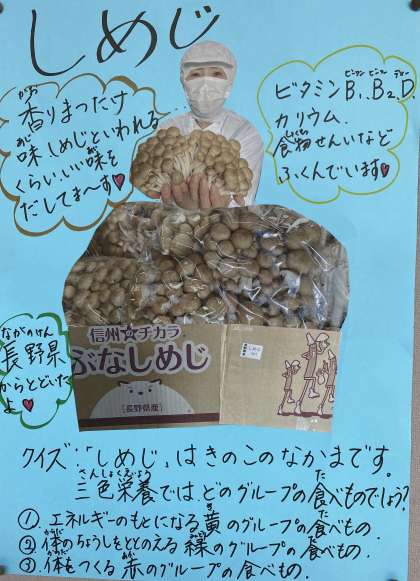 しめじ
香りまつたけ
味しめじといわれる…
くらいいい味を
だしてま〜す♥
ビタミンB₁、B₂、D
カリウム、
食物せんいなど
ふくんでいます♥
信州のチカラ
ぶなしめじ
[長野県産]
ながのけん
長野県
からとどいた
よ♥
クイズ:「しめじ」はきのこのなかまです。
さんしょくえいよう
三色栄養では、どのグループの食べものでしょう?
①. エネルギーのもとになる黄のグループの食べもの
②. 体のちょうしをととのえる緑のグループの食べもの.
③. 体をつくる赤のグループの食べもの.